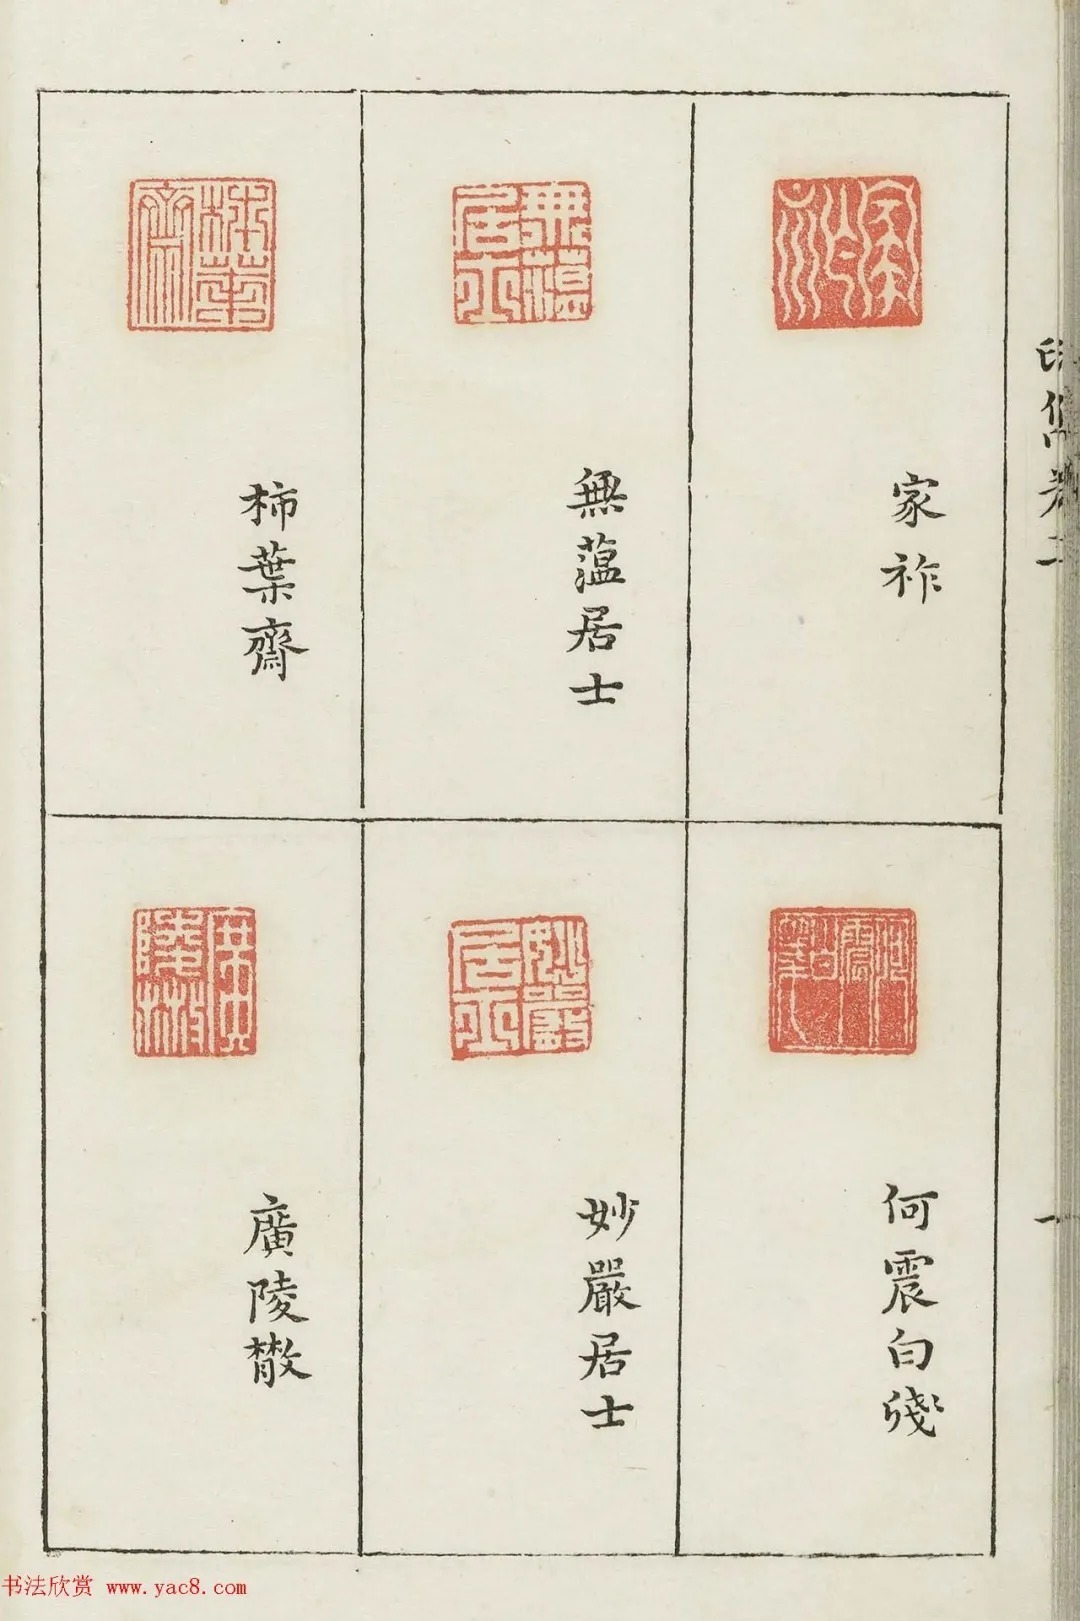 家祚
無薀居士
柿葉齋
何震白牋
妙嚴居士
廣陵散
印雋卷二
一
书法欣赏 www.yac8.com